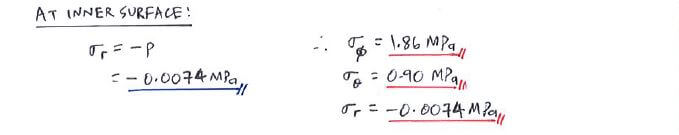 AT INNER SURFACE:
σr = -P
= -0.0074 MPa
∴ σϕ = 1.86 MPa
σθ = 0.90 MPa
σr = -0.0074 MPa